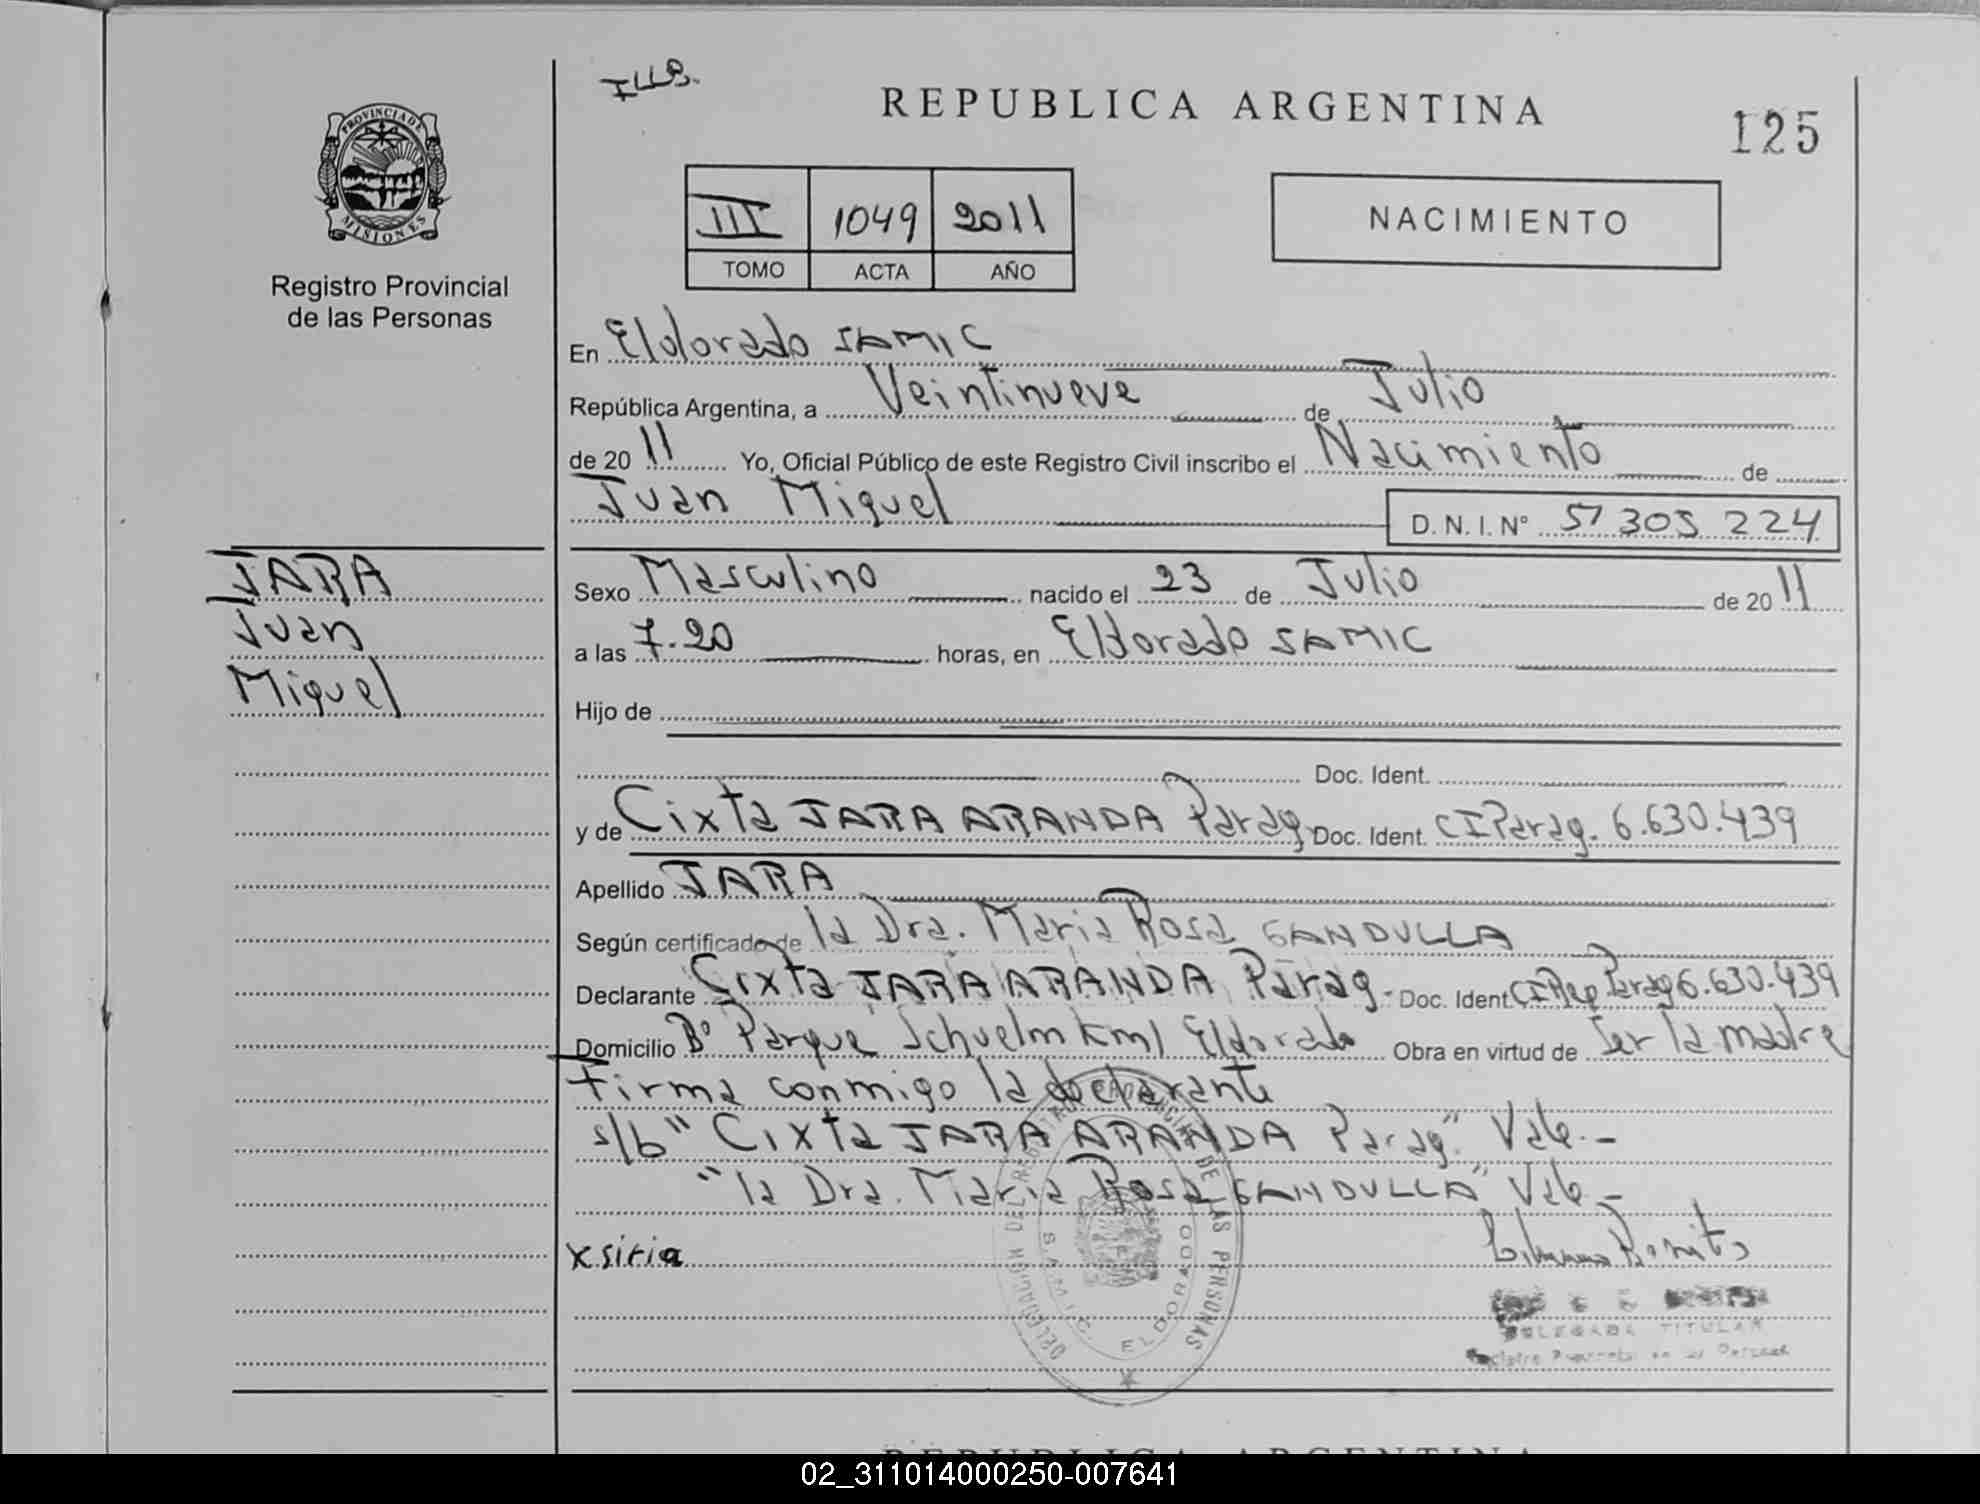 REPUBLICA ARGENTINA
125
PROVINCIA DE MISIONES
Registro Provincial
de las Personas
III 1049 2011
TOMO ACTA AÑO
NACIMIENTO
En Eldorado SAMIC
República Argentina, a Veintinueve de Julio
de 20 11 Yo, Oficial Público de este Registro Civil inscribo el Nacimiento de
Juan Miguel D.N.I.Nº 51 305 224
JARA
Juan
Miguel
Sexo Masculino nacido el 23 de Julio de 20 11
a las 7.20 horas, en Eldorado SAMIC
Hijo de
Doc. Ident.
y de Cixta JARA ARANDA Parag. Doc. Ident. CI Parag. 6.630.439
Apellido JARA
Según certificado de la Dra. Maria Rosa GANDULLA
Declarante Cixta JARA ARANDA Parag. Doc. Ident. CI Rep Parag 6.630.439
Domicilio Bº Parque Schuelm km1 Eldorado Obra en virtud de Ser la madre
Firma conmigo la declarante
s/b "Cixta JARA ARANDA Parag." Vale.-
"la Dra. Maria Rosa GANDULLA" Vale-
x siria
DELEGADA TITULAR
DELEGACION DEL REGISTRO PROVINCIAL DE LAS PERSONAS
S.A.M.I.C. ELDORADO
REPUBLICA ARGENTINA
02_311014000250-007641